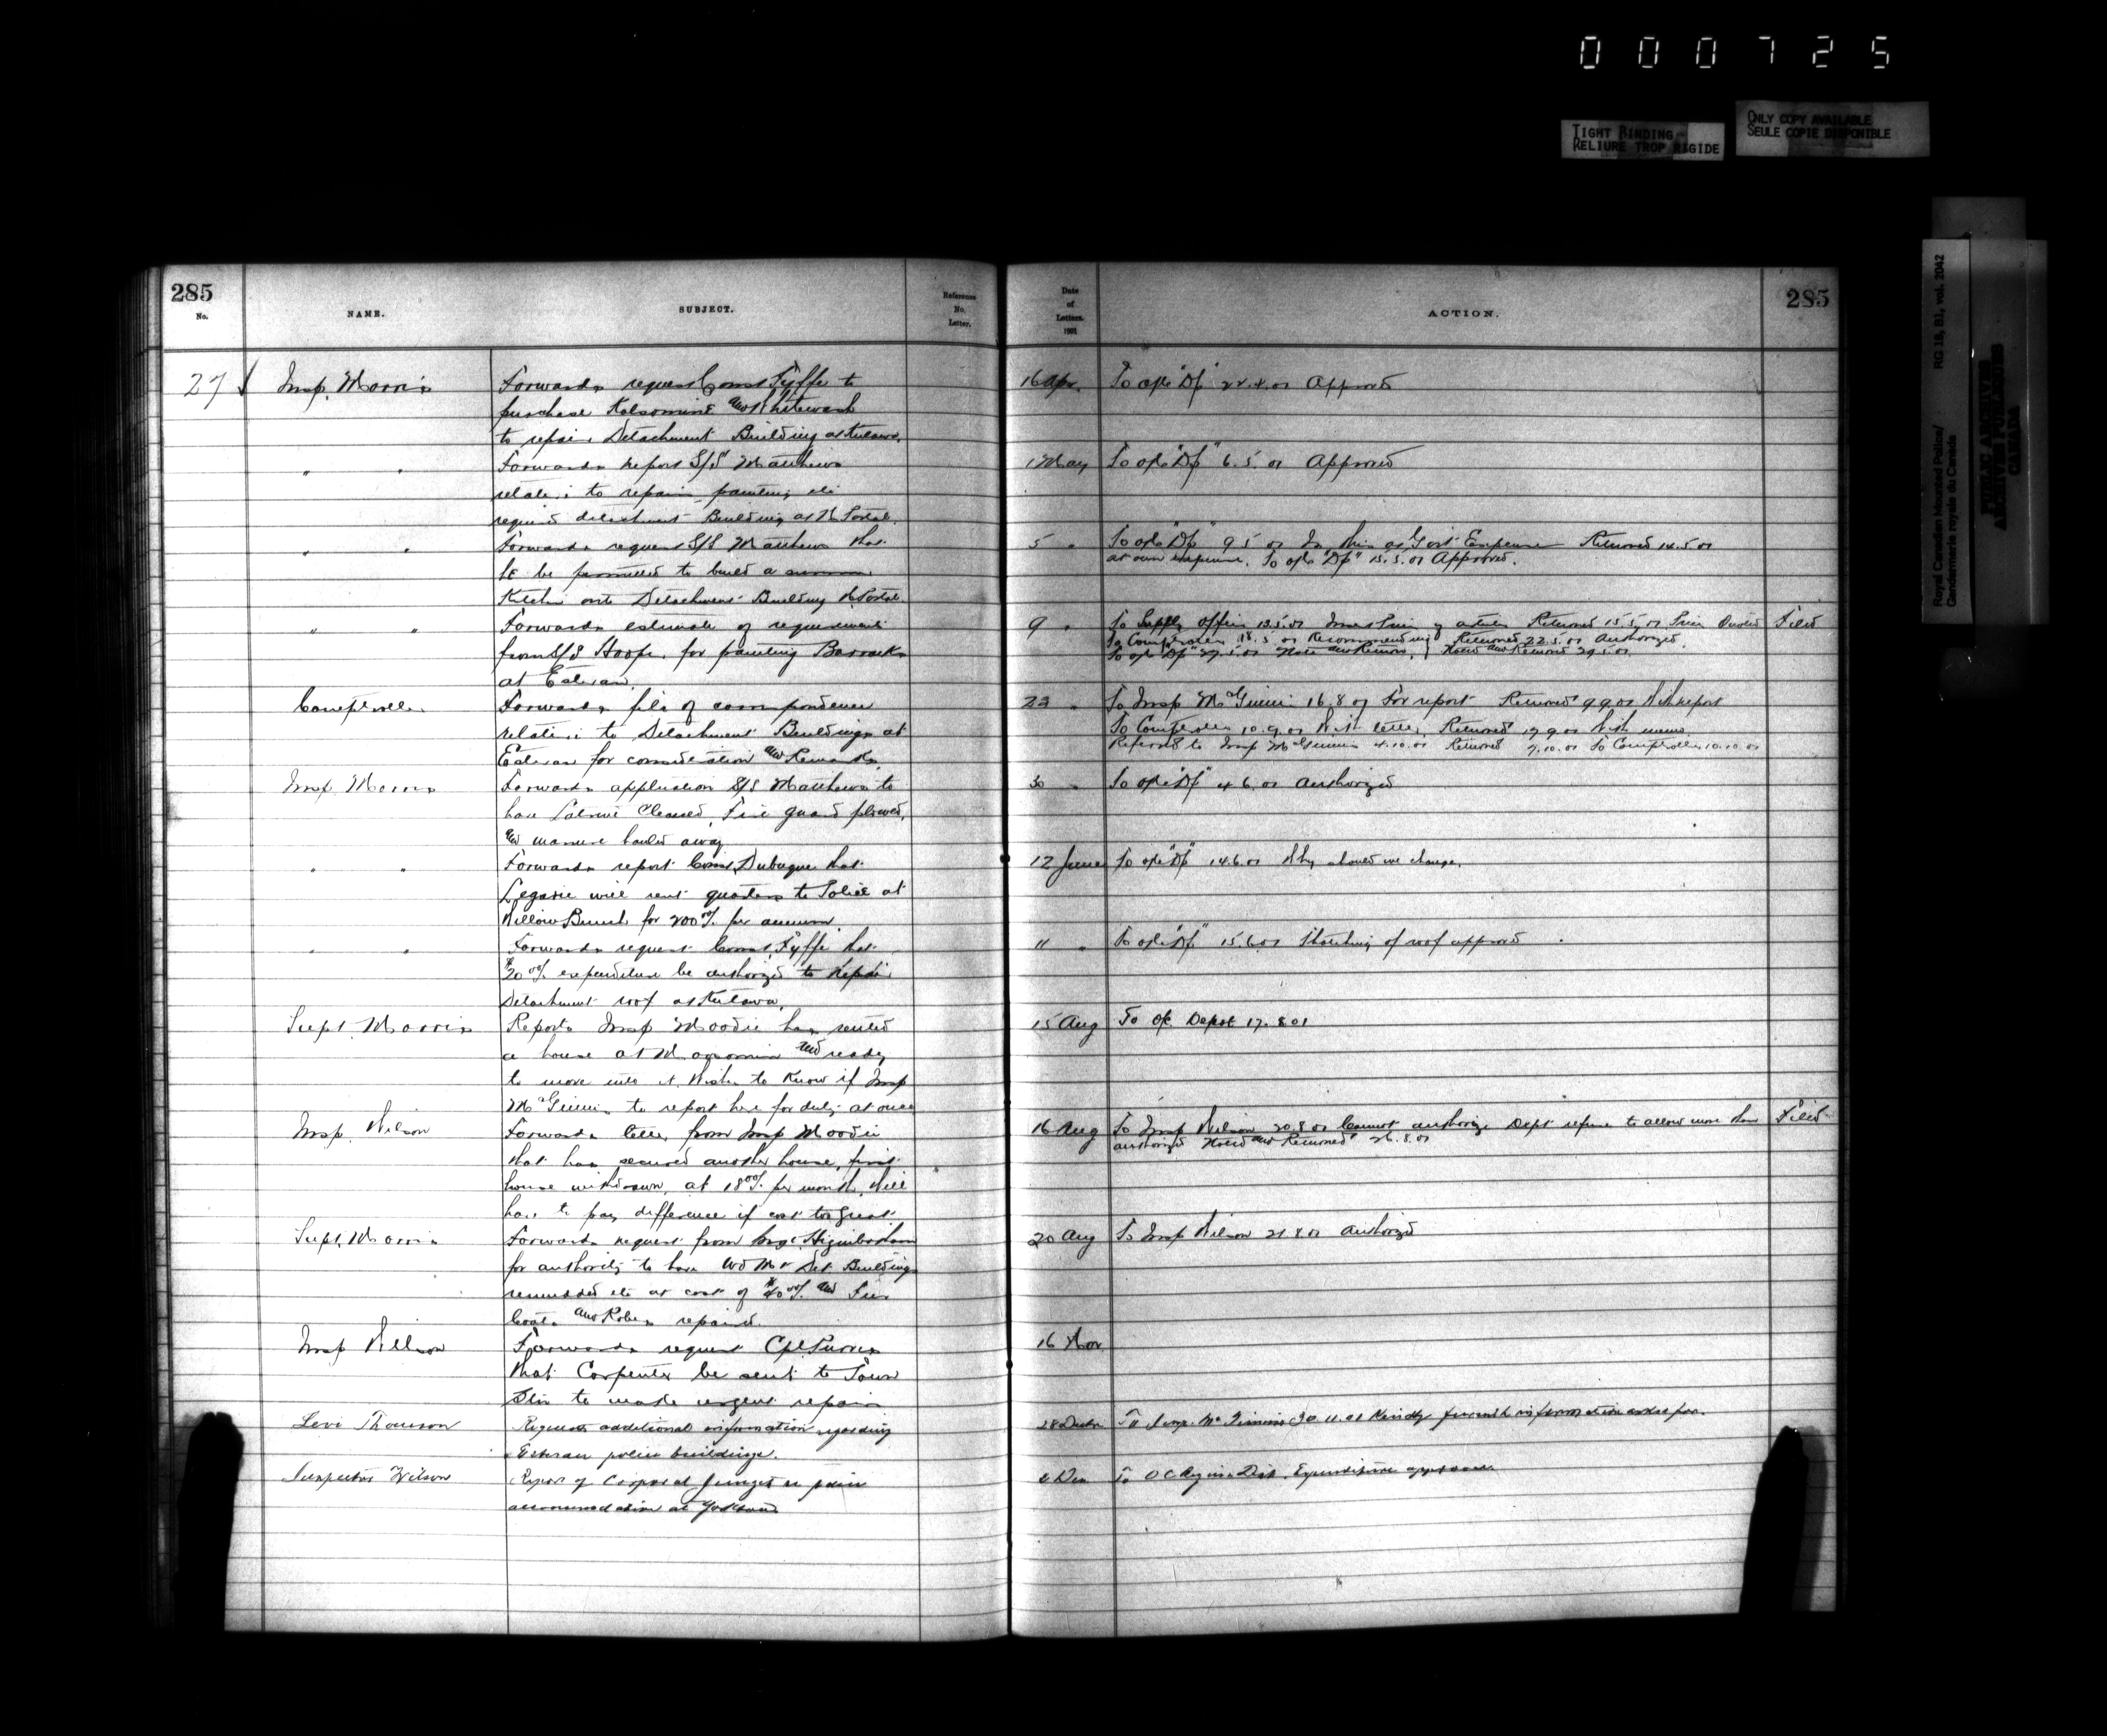 000725
TIGHT BINDING
RELIURE TROP RIGIDE
ONLY COPY AVAILABLE
SEULE COPIE DISPONIBLE
Royal Canadian Mounted Police/
Gendarmerie royale du Canada
RG 18, B1, vol. 2042
PUBLIC ARCHIVES
ARCHIVES PUBLIQUES
CANADA
285
No.
NAME.
SUBJECT.
Reference
No.
Letter.
Date
of
Letters.
1901
ACTION.
285
27 Insp. Morris
Forwards request Const Fyffe to
purchase Kalsomine and Whitewash
to repair Detachment Building at
16 Apr. 22.4.01 Approved
" " Forwards report S/S Matthews
relative to repairs, painting etc
required detachment Building at N. Portal.
1 May 6.5.01 Approved
" " Forwards request S/S Matthews that
he be permitted to build a summer
Kitchen onto Detachment Building N. Portal.
5 " 9.5.01 Is this at Govt Expense Returned 14.5.01
at own expense. 15.5.01 Approved.
" " Forwards estimate of requirements
from S/S Hoope, for painting Barracks
at Estevan.
9 " To Supply Officer 13.5.01 Returned 15.5.01 Price Quoted Filed
To Comptroller 18.5.01 Recommending Returned 22.5.01 Authorized.
27.5.01 Note and Return. Noted and Returned 29.5.01
Comptroller
Forwards file of correspondence
relative to Detachment Buildings at
Estevan for consideration and Remarks.
23 " To Insp McGinnis 16.8.01 For report Returned 9.9.01 With report
To Comptroller 10.9.01 With letter, Returned 17.9.01 With memo
Referred to Insp McGinnis 4.10.01 Returned 7.10.01 To Comptroller 10.10.01
Insp. Morris
Forwards application S/S Matthews to
have Latrine Cleaned, Fire guard plowed,
and manure hauled away
30 " 4.6.01 Authorized
" " Forwards report Const. Dubuque that
Legarie will rent quarters to Police at
Willow Bunch for 200 00/ per annum.
12 June 14.6.01 Why should we change.
" " Forwards request Const. Fyffe that
$20 00/ expenditure be authorized to repair
Detachment roof at
11 " 15.6.01 Thatching of roof approved
Supt Morris
Reports Insp Moodie has rented
a house at Moosomin and ready
to move into it. Wishes to know if Insp
McGinnis to report here for duty at once
15 Aug To Depot 17.8.01
Insp. Wilson
Forwards letter from Insp Moodie
that has secured another house, first
house withdrawn, at 18 00/ per month, Will
have to pay difference if cost too great
16 Aug To Insp Wilson 20.8.01 Cannot authorize Dept refuse to allow more than Filed
authorized Noted and Returned 26.8.01
Supt. Morris
Forwards request from Higinbotham
for authority to have Wd Mt Det. Buildings
remudded etc at cost of $40 00/ and Fur
Coats and Robes repaired.
20 Aug To Insp Wilson 21.8.01 Authorized
Insp Wilson
Forwards request Cpl Purves
that Carpenter be sent to Town
Stn to make urgent repairs
16 Nov
Levi Thomson
Requests additional information regarding
Estevan police buildings.
28 To Insp. McGinnis 30.11.01 Kindly furnish information asked for.
Inspector Wilson
Report of Corporal Junget re
accommodation at Yorkton
2 Dec To O C Regina Dist. Expenditure approved